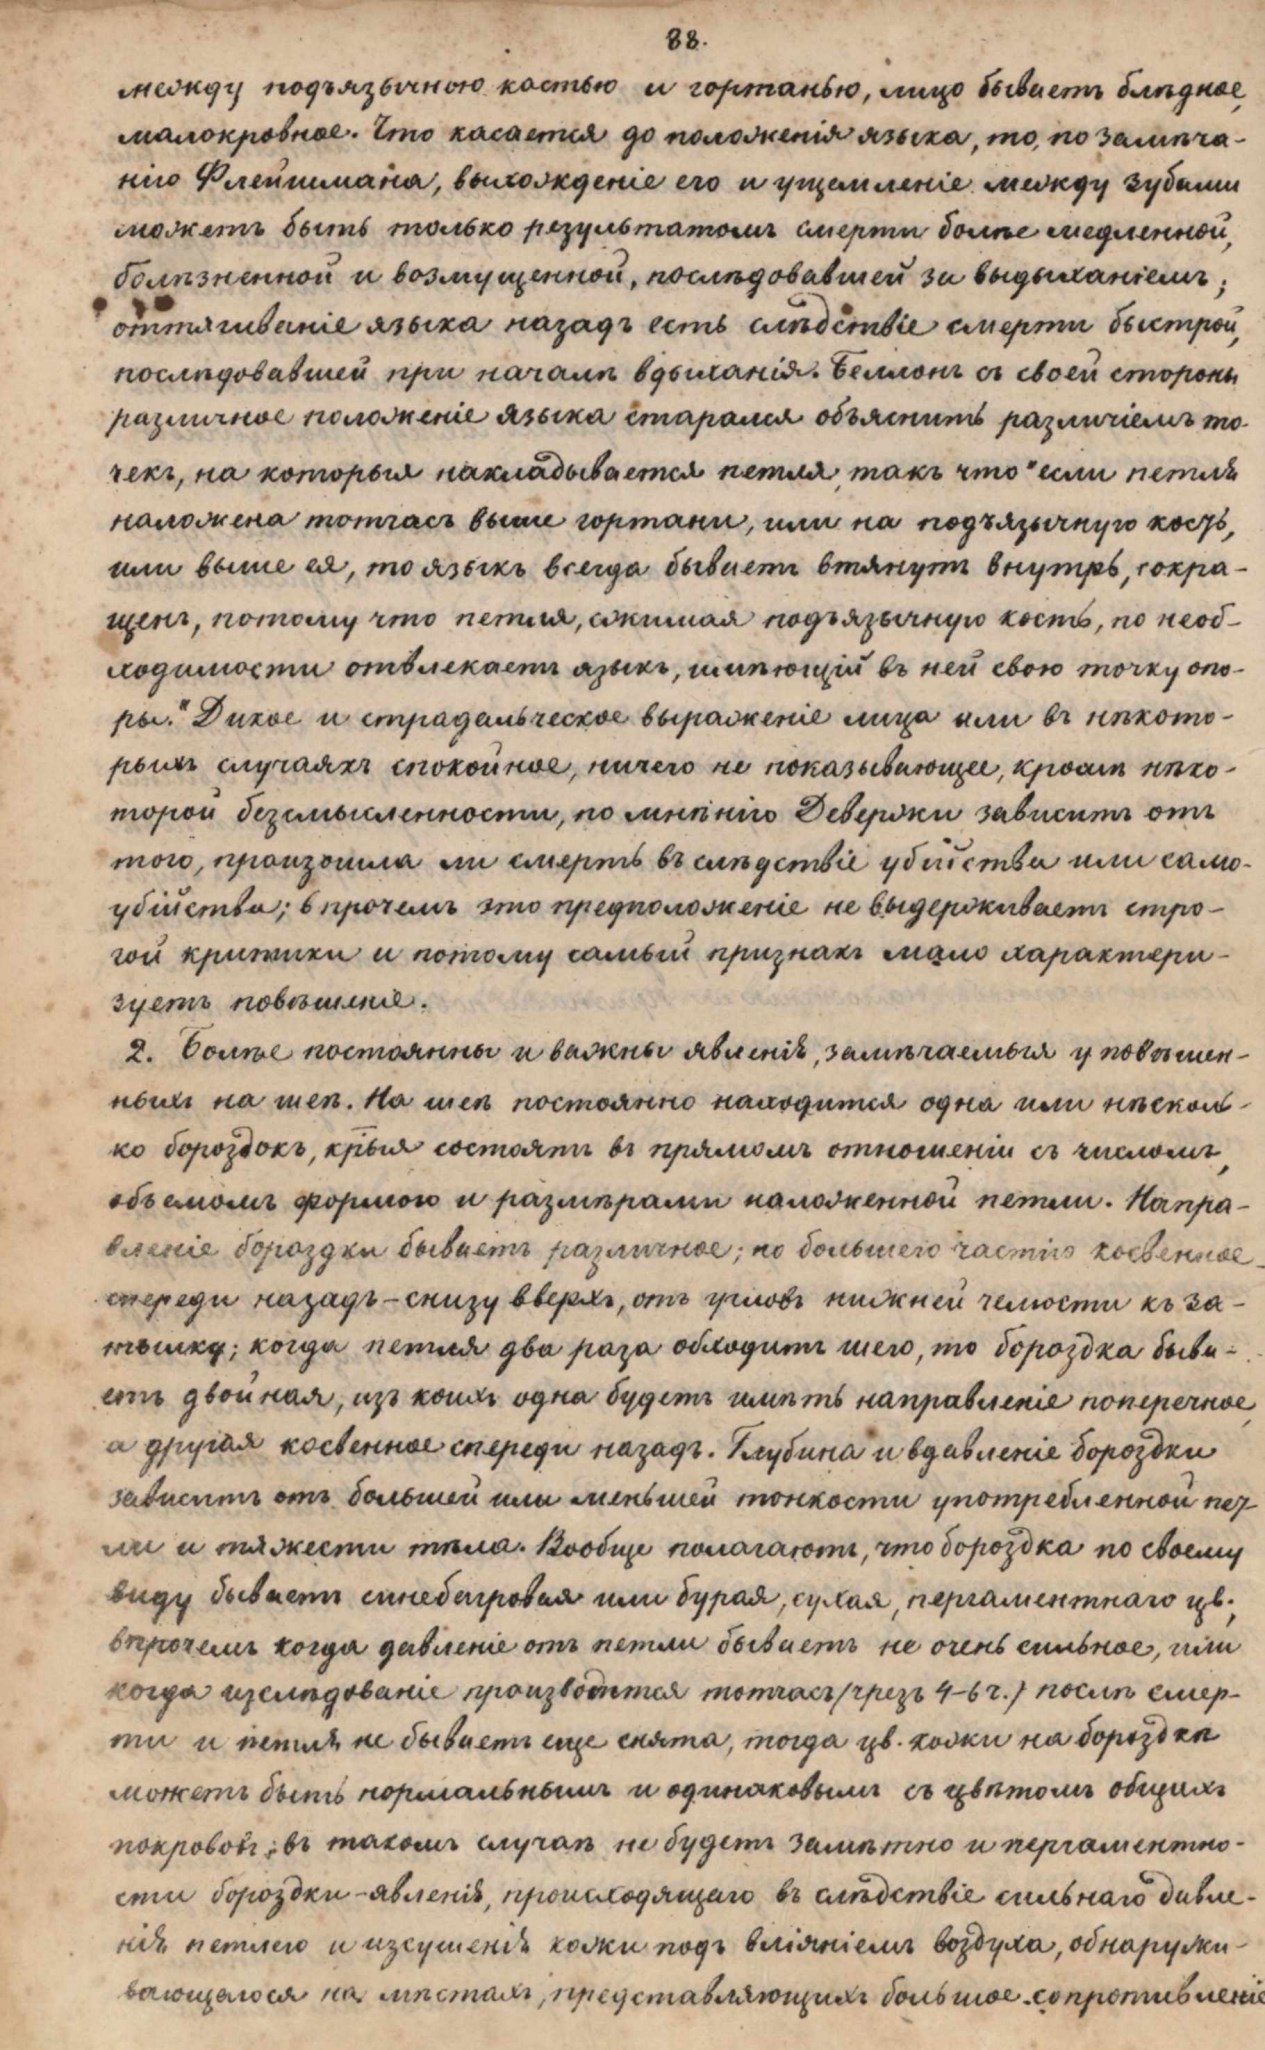 88.
между подъязычною костью и гортанью, лицо бываетъ блѣдное,
малокровное. Что касается до положенія языка, то, по замѣча-
нію Флейшмана, выхожденіе его и ущемленіе между зубами
можетъ быть только результатомъ смерти болѣе медленной,
болѣзненной и возмущенной, послѣдовавшей за выдыханіемъ;
оттягиваніе языка назадъ есть слѣдствіе смерти быстрой,
послѣдовавшей при началѣ вдыханія. Беллонъ съ своей стороны
различное положеніе языка старался объяснить различіемъ то-
чекъ, на которыя накладывается петля, такъ что "если петля
наложена тотчасъ выше гортани, или на подъязычную кость,
или выше ея, то языкъ всегда бываетъ втянутъ внутрь, сокра-
щенъ, потому что петля, сжимая подъязычную кость, по необ-
ходимости отвлекаетъ языкъ, имѣющій въ ней свою точку опо-
ры." Дикое и страдальческое выраженіе лица или въ нѣкото-
рыхъ случаяхъ спокойное, ничего не показывающее, кромѣ нѣко-
торой безсмысленности, по мнѣнію Девержи зависитъ отъ
того, произошла ли смерть въ слѣдствіе убійства или само-
убійства; впрочемъ это предположеніе не выдерживаетъ стро-
гой критики и потому самый признакъ мало характери-
зуетъ повѣшеніе.
2. Болѣе постоянны и важны явленія, замѣчаемыя у повѣшен-
ныхъ на шеѣ. На шеѣ постоянно находится одна или нѣсколь-
ко бороздокъ, крыя состоятъ въ прямомъ отношеніи съ числомъ,
объемомъ формою и размѣрами наложенной петли. Напра-
вленіе бороздки бываетъ различное; по большею частію косвенное
спереди назадъ-снизу вверхъ, отъ угловъ нижней челюсти къ за-
тылку; когда петля два раза обходитъ шею, то бороздка быва-
етъ двойная, изъ коихъ одна будетъ имѣть направленіе поперечное,
а другая косвенное спереди назадъ. Глубина и вдавленіе бороздки
зависитъ отъ большей или меньшей тонкости употребленной пет-
ли и тяжести тѣла. Вообще полагаютъ, что бороздка по своему
виду бываетъ синебагровая или бурая, сухая, пергаментнаго цв.;
впрочемъ когда давленіе отъ петли бываетъ не очень сильное, или
когда изслѣдованіе производится тотчасъ (чрезъ 4-6 ч.) послѣ смер-
ти и петля не бываетъ еще снята, тогда цв. кожи на бороздкѣ
можетъ быть нормальнымъ и одинаковымъ съ цвѣтомъ общихъ
покрововъ; въ такомъ случаѣ не будетъ замѣтно и пергаментно-
сти бороздки-явленія, происходящаго въ слѣдствіе сильнаго давле-
нія петлею и изсушенія кожи подъ вліяніемъ воздуха, обнаружи-
вающагося на мѣстахъ, представляющихъ большое сопротивленіе